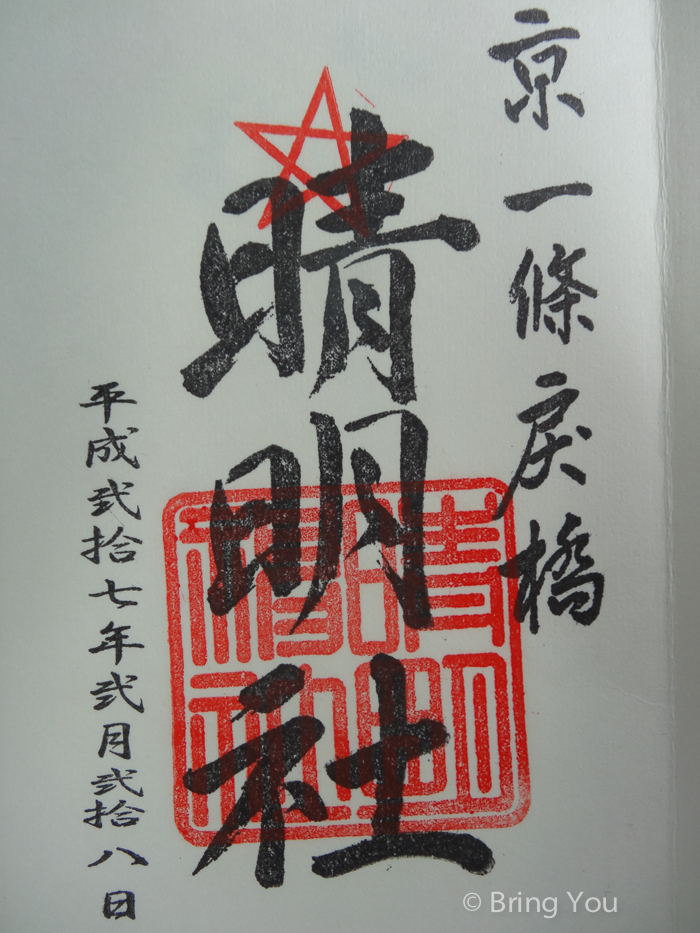 京一條戻橋
晴明社
平成弐拾七年弐月弐拾八日
© Bring You